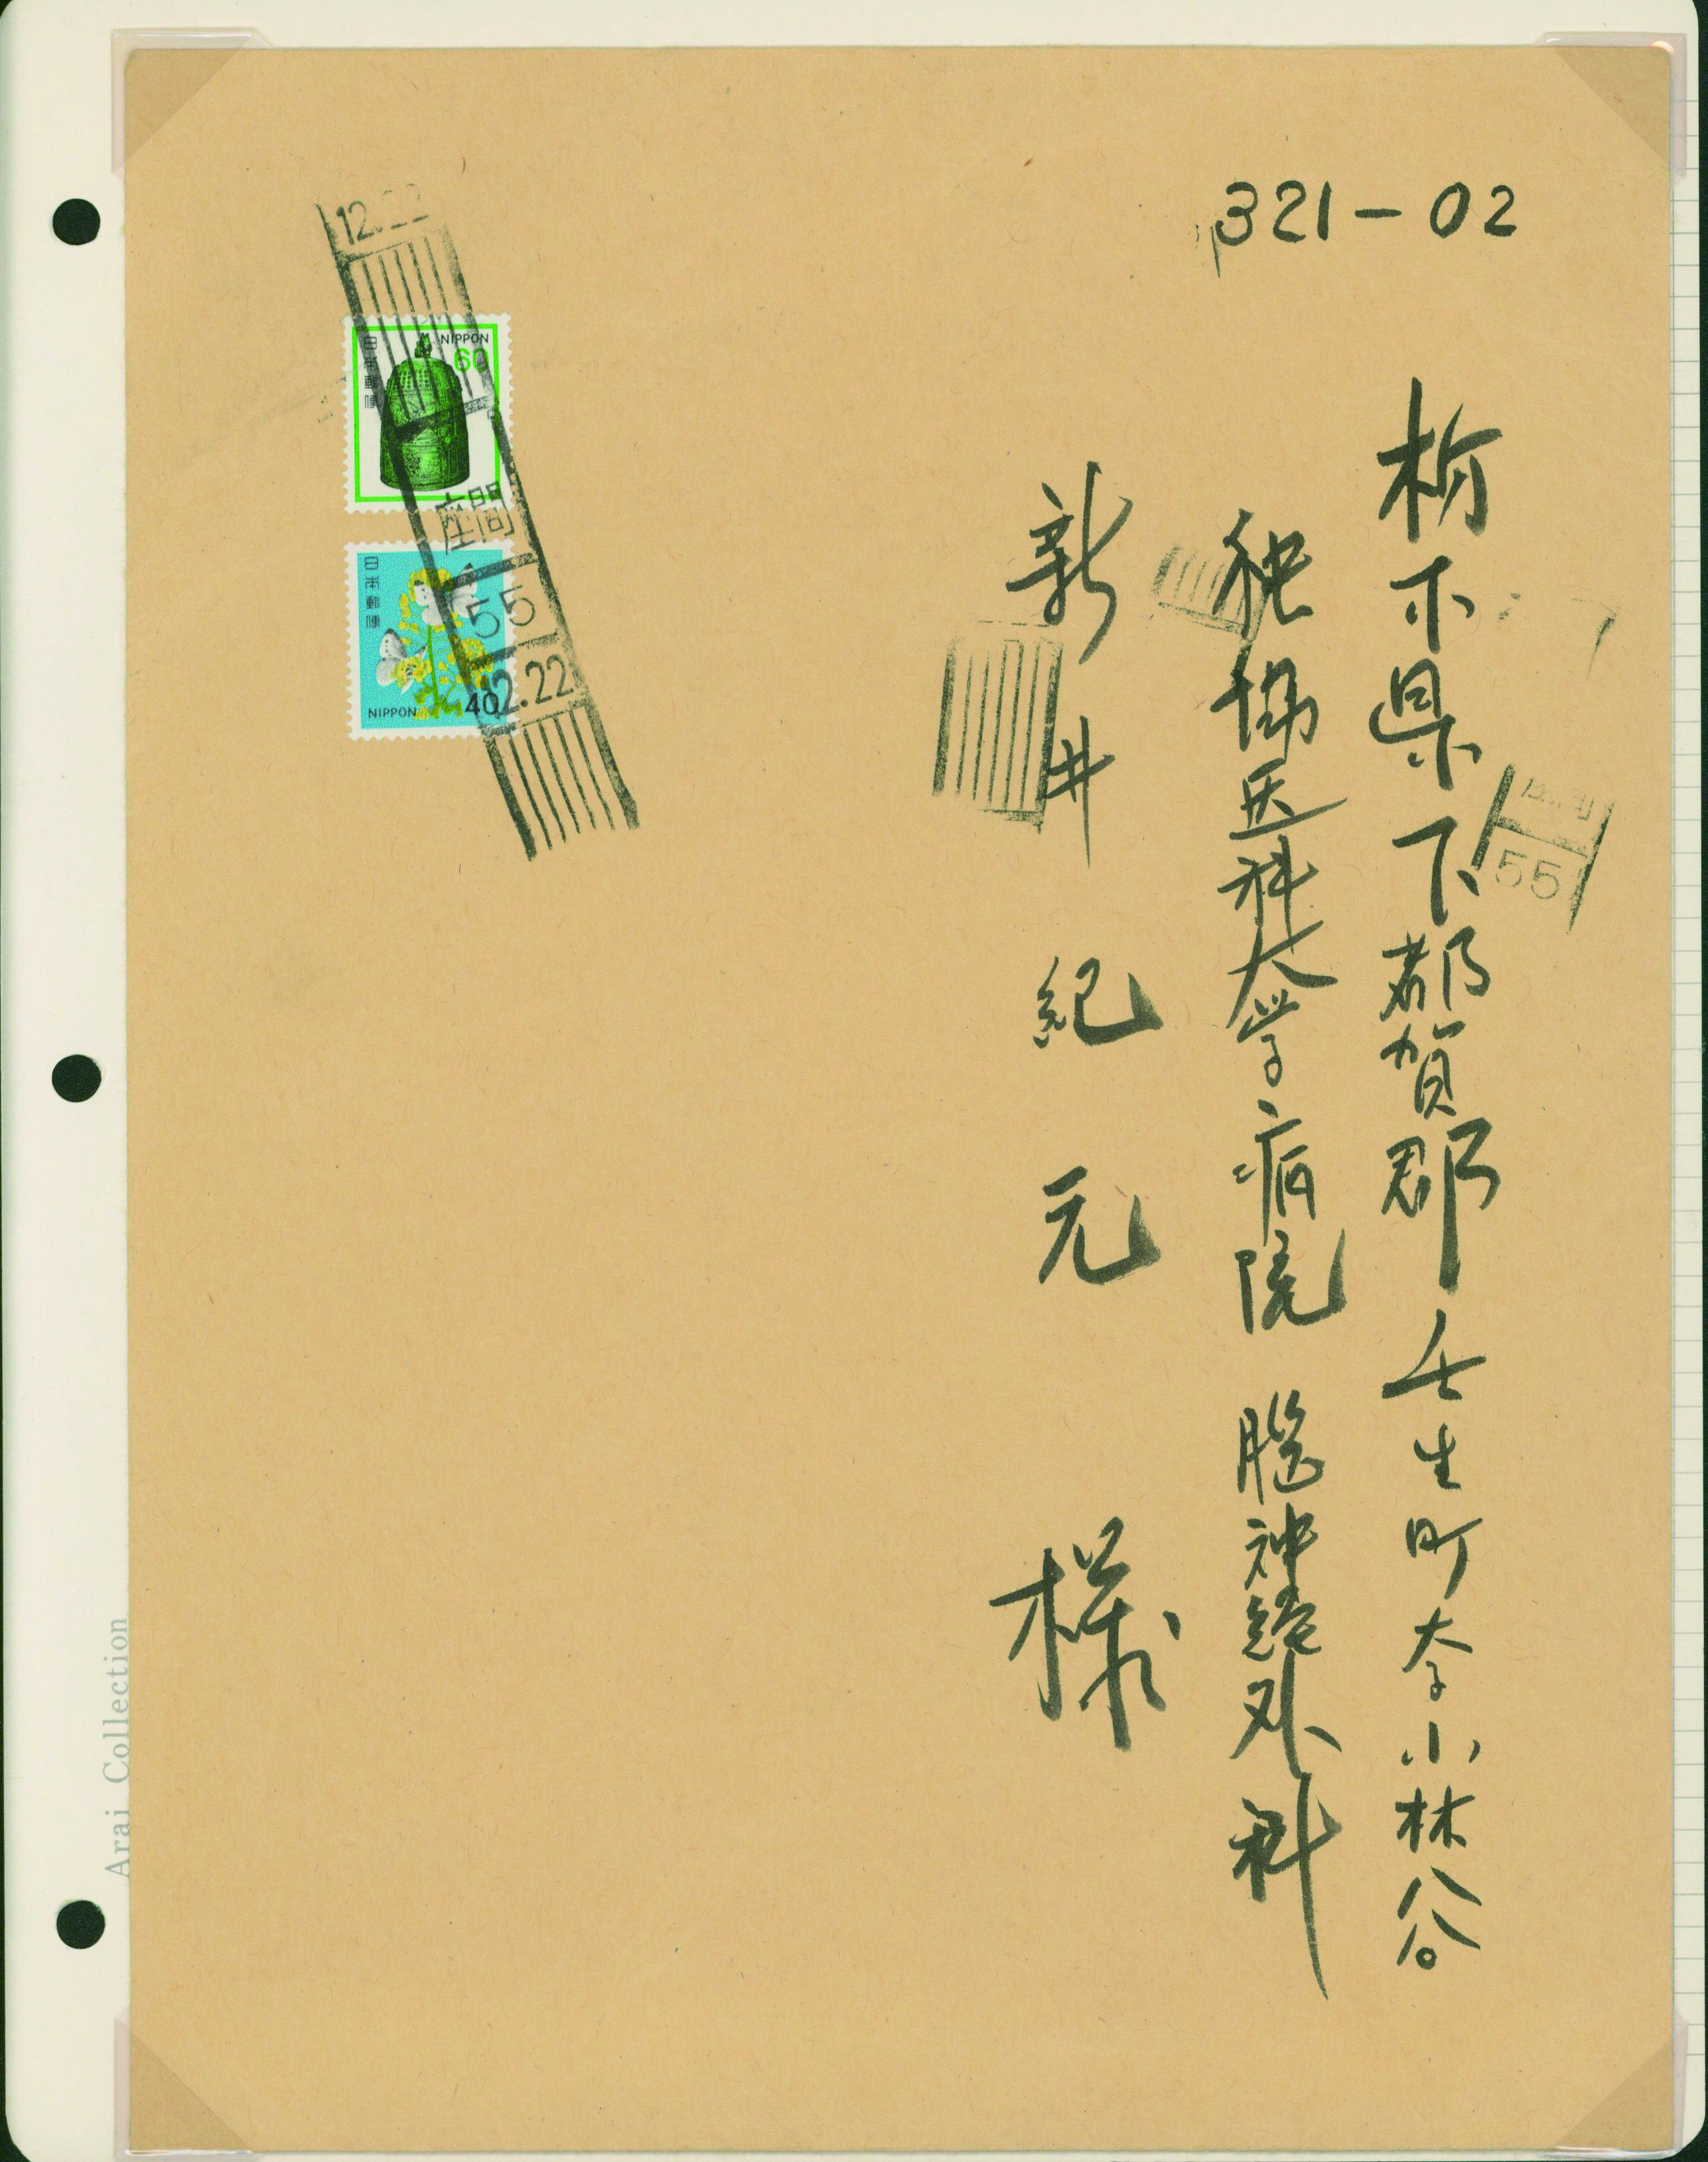 321-02
栃木県下都賀郡壬生町大字小林谷
獨協医科大学病院 脳神経外科
新井紀元 様
12.22
日本郵便
NIPPON
60
座間
55
12.22
日本郵便
NIPPON
40
55
Arai Collection